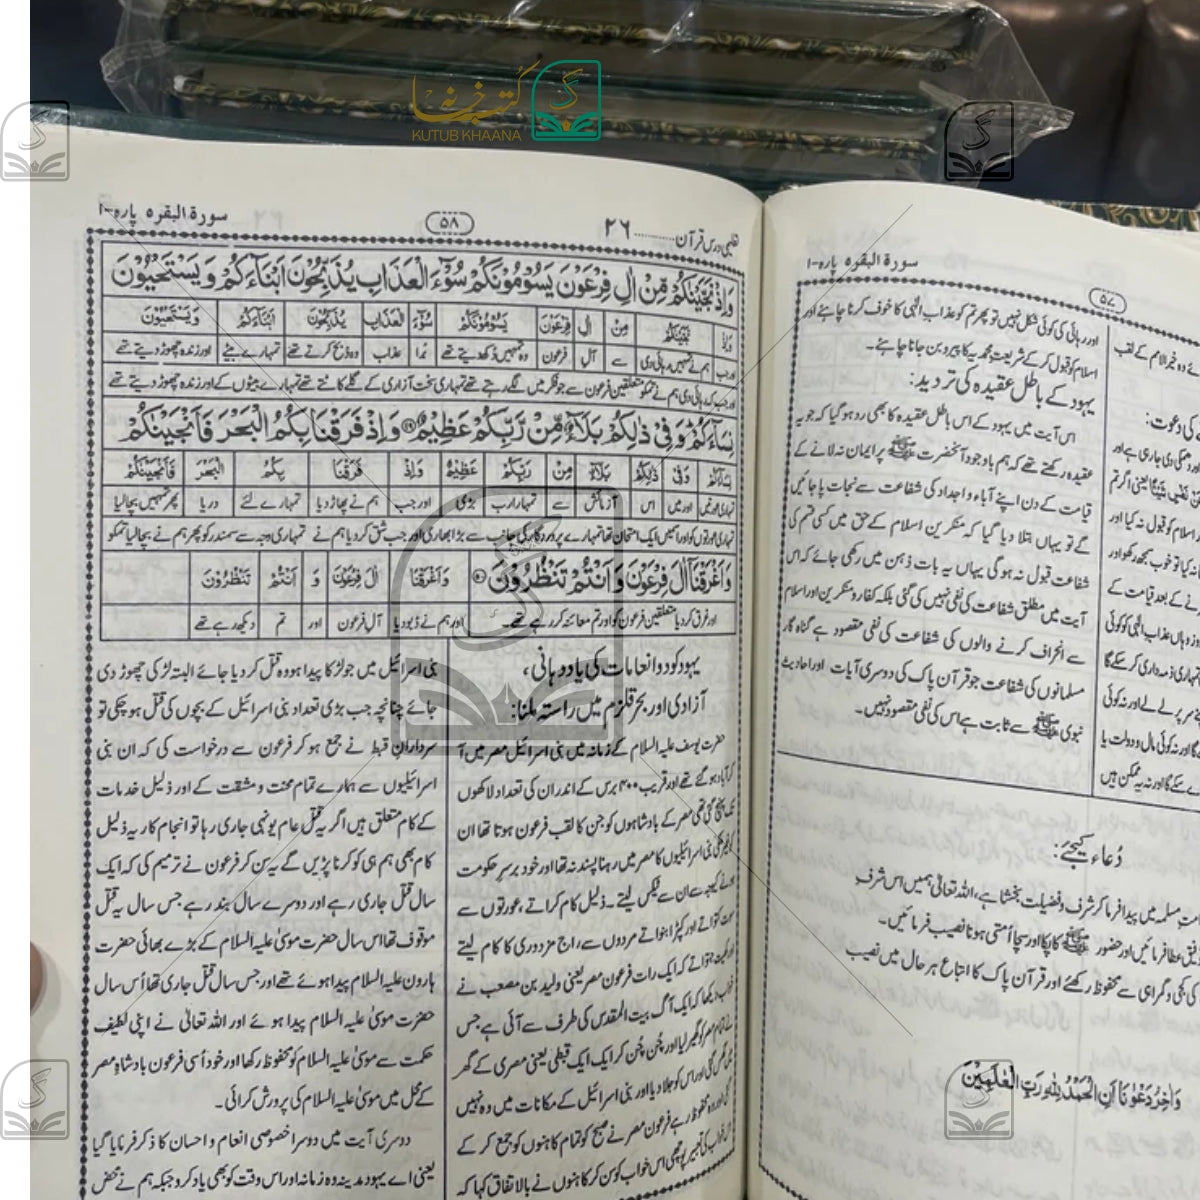 کتب خانہ
KUTUB KHAANA
سورۃ البقرہ پارہ-۱
۵۸
تعلیمی درس قرآن..........۲۶
وَاِذْ نَجَّيْنٰكُمْ مِّنْ اٰلِ فِرْعَوْنَ يَسُوْمُوْنَكُمْ سُوْٓءَ الْعَذَابِ يُذَبِّحُوْنَ اَبْنَآءَكُمْ وَيَسْتَحْيُوْنَ
وَاِذْ نَجَّيْنٰكُمْ مِنْ اٰلِ فِرْعَوْنَ يَسُوْمُوْنَكُمْ سُوْٓءَ الْعَذَابِ يُذَبِّحُوْنَ اَبْنَآءَكُمْ وَيَسْتَحْيُوْنَ
اور جب ہم نے تمہیں رہائی دی سے آل فرعون وہ تمہیں دکھ دیتے تھے بُرا عذاب وہ ذبح کرتے تھے تمہارے بیٹے اور زندہ چھوڑ دیتے تھے
اور جب کہ رہائی دی ہم نے تمکو متعلقین فرعون سے جو فکر میں لگے رہتے تھے تمہاری سخت آزاری کے گلے کاٹتے تھے تمہارے بیٹوں کے اور زندہ چھوڑ دیتے تھے
نِسَآءَكُمْ وَفِيْ ذٰلِكُمْ بَلَآءٌ مِّنْ رَّبِّكُمْ عَظِيْمٌ وَاِذْ فَرَقْنَا بِكُمُ الْبَحْرَ فَاَنْجَيْنٰكُمْ
نِسَآءَكُمْ وَفِيْ ذٰلِكُمْ بَلَآءٌ مِنْ رَبِّكُمْ عَظِيْمٌ وَاِذْ فَرَقْنَا بِكُمُ الْبَحْرَ فَاَنْجَيْنٰكُمْ
تمہاری عورتیں اور میں اس آزمائش سے تمہارا رب بڑی اور جب ہم نے پھاڑ دیا تمہارے لئے دریا پھر تمہیں بچا لیا
تمہاری عورتوں کو اور اسمیں ایک امتحان تھا تمہارے پروردگار کی جانب سے بڑا بھاری اور جب شق کر دیا ہم نے تمہاری وجہ سے سمندر کو پھر ہم نے بچا لیا تمکو
وَاَغْرَقْنَآ اٰلَ فِرْعَوْنَ وَاَنْتُمْ تَنْظُرُوْنَ وَاَغْرَقْنَا اٰلَ فِرْعَوْنَ وَ اَنْتُمْ تَنْظُرُوْنَ
اور غرق کر دیا متعلقین فرعون کو اور تم معائنہ کر رہے تھے۔ اور ہم نے ڈبو دیا آل فرعون اور تم دیکھ رہے تھے
یہود کو دو انعامات کی یاد دہانی،
آزادی اور بحر قلزم میں راستہ ملنا:
حضرت یوسف علیہ السلام کے زمانہ میں بنی اسرائیل مصر میں آ
کر آباد ہو گئے تھے اور قریب ۴۰۰ برس کے اندر ان کی تعداد لاکھوں
تک پہنچ گئی تھی مصر کے بادشاہوں کو جن کا لقب فرعون ہوتا تھا ان
بنی اسرائیلیوں کا مصر میں رہنا پسند نہ تھا اور خود بر سر حکومت
ہونے کیوجہ سے ان سے ٹیکس لیتے۔ ذلیل کام کراتے، عورتوں سے
سوت کتواتے اور کپڑا بنواتے مردوں سے، اج مزدوری کا کام لیتے
کہ ایک رات فرعون مصر یعنی ولید بن مصعب نے
خواب دیکھا کہ ایک آگ بیت المقدس کی طرف سے آئی ہے جس
نے تمام مصر کو گھیر لیا اور چُن چُن کر ایک ایک قبطی یعنی مصری کے گھر
میں گھس گئی اور اس کو جلا دیا اور بنی اسرائیل کے مکانات میں وہ نہیں
گئی اور وہ محفوظ رہے فرعون مصر نے صبح کو تمام کاہنوں کو جمع کر کے
اس خواب کی تعبیر پوچھی اس خواب کو سن کر کاہنوں نے بالاتفاق کہا کہ
بنی اسرائیل میں جو لڑکا پیدا ہو وہ قتل کر دیا جائے البتہ لڑکی چھوڑ دی
جائے چنانچہ جب بڑی تعداد بنی اسرائیل کے بچوں کی قتل ہو چکی تو
سردارانِ قبط نے جمع ہو کر فرعون سے درخواست کی کہ ان بنی
اسرائیلیوں سے ہمارے تمام محنت و مشقت کے اور ذلیل خدمات
کے کام متعلق ہیں اگر یہ قتل عام یونہی جاری رہا تو انجام کار یہ ذلیل
کام بھی ہم ہی کو کرنا پڑیں گے یہ سن کر فرعون نے ترمیم کی کہ ایک
سال قتل جاری رہے اور دوسرے سال بند رہے جس سال یہ قتل
موقوف تھا اس سال حضرت موسیٰ علیہ السلام کے بڑے بھائی حضرت
ہارون علیہ السلام پیدا ہوئے تھے اور جس سال قتل جاری تھا اُس سال
حضرت موسیٰ علیہ السلام پیدا ہوئے اور اللہ تعالیٰ نے اپنی لطیف
حکمت سے موسیٰ علیہ السلام کو محفوظ رکھا اور خود اُسی فرعون بادشاہِ مصر
کے محل میں موسیٰ علیہ السلام کی پرورش کرائی۔
دوسری آیت میں دوسرا خصوصی انعام و احسان کا ذکر فرمایا گیا
یعنی اے یہود مدینہ وہ زمانہ اور اس وقت کو بھی یاد کرو جبکہ ہم نے محض
سورۃ البقرہ پارہ-۱
۵۷
اور رہائی کی کوئی شکل نہیں تو پھر تم کو عذاب الٰہی کا خوف کرنا چاہئے اور
اسلام کو قبول کر کے شریعت محمدیہ کا پیرو بن جانا چاہئے۔
یہود کے باطل عقیدہ کی تردید:
اس آیت میں یہود کے اس باطل عقیدہ کا بھی رد ہو گیا کہ جو یہ
عقیدہ رکھتے تھے کہ ہم باوجود آنحضرت ﷺ پر ایمان نہ لانے کے
قیامت کے دن اپنے آباء و اجداد کی شفاعت سے نجات پا جائیں
گے تو یہاں بتلا دیا گیا کہ منکرین اسلام کے حق میں کسی قسم کی
شفاعت قبول نہ ہو گی یہاں یہ بات ذہن میں رکھی جائے کہ اس
آیت میں مطلق شفاعت کی نفی نہیں کی گئی بلکہ کفار و منکرین اور اسلام
سے انحراف کرنے والوں کی شفاعت کی نفی مقصود ہے گناہ گار
مسلمانوں کی شفاعت جو قرآن پاک کی دوسری آیات اور احادیث
نبوی ﷺ سے ثابت ہے اس کی نفی مقصود نہیں۔
دُعاء کیجئے:
مسلمہ میں پیدا فرما کر شرف و فضیلت بخشا ہے، اللہ تعالیٰ ہمیں اس شرف
عطا فرمائیں اور حضور ﷺ کا پکا اور سچا اُمتی ہونا نصیب فرمائیں۔
کی کجی و گمراہی سے محفوظ رکھئے اور قرآن پاک کا اتباع ہر حال میں نصیب
وَاٰخِرُ دَعْوٰنَا اَنِ الْحَمْدُ لِلّٰهِ رَبِّ الْعٰلَمِيْنَ